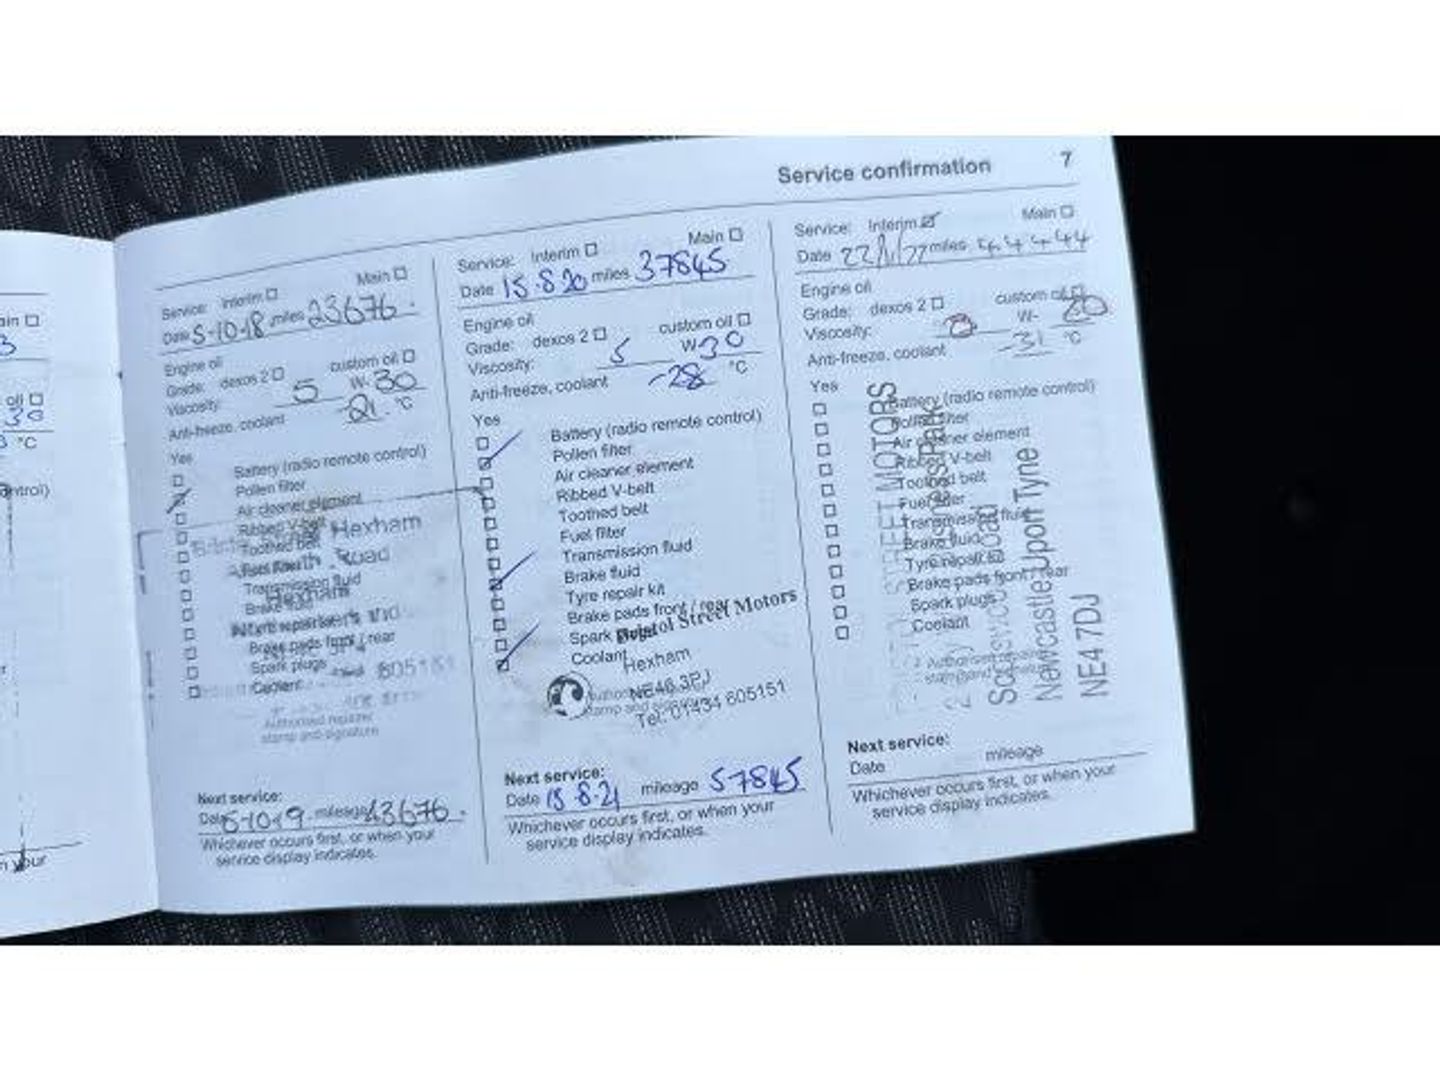 Service confirmation 7
Service: Interim Main
Date 5-10-18 miles 23676
Engine oil
Grade: dexos 2 custom oil
Viscosity: 5 W- 30
Anti-freeze, coolant -21 °C
Yes
Battery (radio remote control)
Pollen filter
Air cleaner element
Ribbed V-belt
Toothed belt
Fuel filter
Transmission fluid
Brake fluid
Tyre repair kit
Brake pads front / rear
Spark plugs
Coolant
Hexham
Road
Hexham
605151
Authorised repairer
stamp and signature
Next service:
Date 5-10-19 mileage 43676
Whichever occurs first, or when your
service display indicates.
Service: Interim Main
Date 15-8-20 miles 37845
Engine oil
Grade: dexos 2 custom oil
Viscosity: 5 W- 30
Anti-freeze, coolant -28 °C
Yes
Battery (radio remote control)
Pollen filter
Air cleaner element
Ribbed V-belt
Toothed belt
Fuel filter
Transmission fluid
Brake fluid
Tyre repair kit
Brake pads front / rear
Spark plugs
Coolant
Bristol Street Motors
Hexham
NE46 3PJ
Tel: 01434 605151
Next service:
Date 15 8-21 mileage 57845
Whichever occurs first, or when your
service display indicates.
Service: Interim Main
Date 22/11/22 miles 44444
Engine oil
Grade: dexos 2 custom oil
Viscosity: 0 W- 20
Anti-freeze, coolant -31 °C
Yes
Battery (radio remote control)
Pollen filter
Air cleaner element
Ribbed V-belt
Toothed belt
Fuel filter
Transmission fluid
Brake fluid
Tyre repair kit
Brake pads front / rear
Spark plugs
Coolant
STREET MOTORS
Newcastle Upon Tyne
NE4 7DJ
Next service:
Date mileage
Whichever occurs first, or when your
service display indicates.